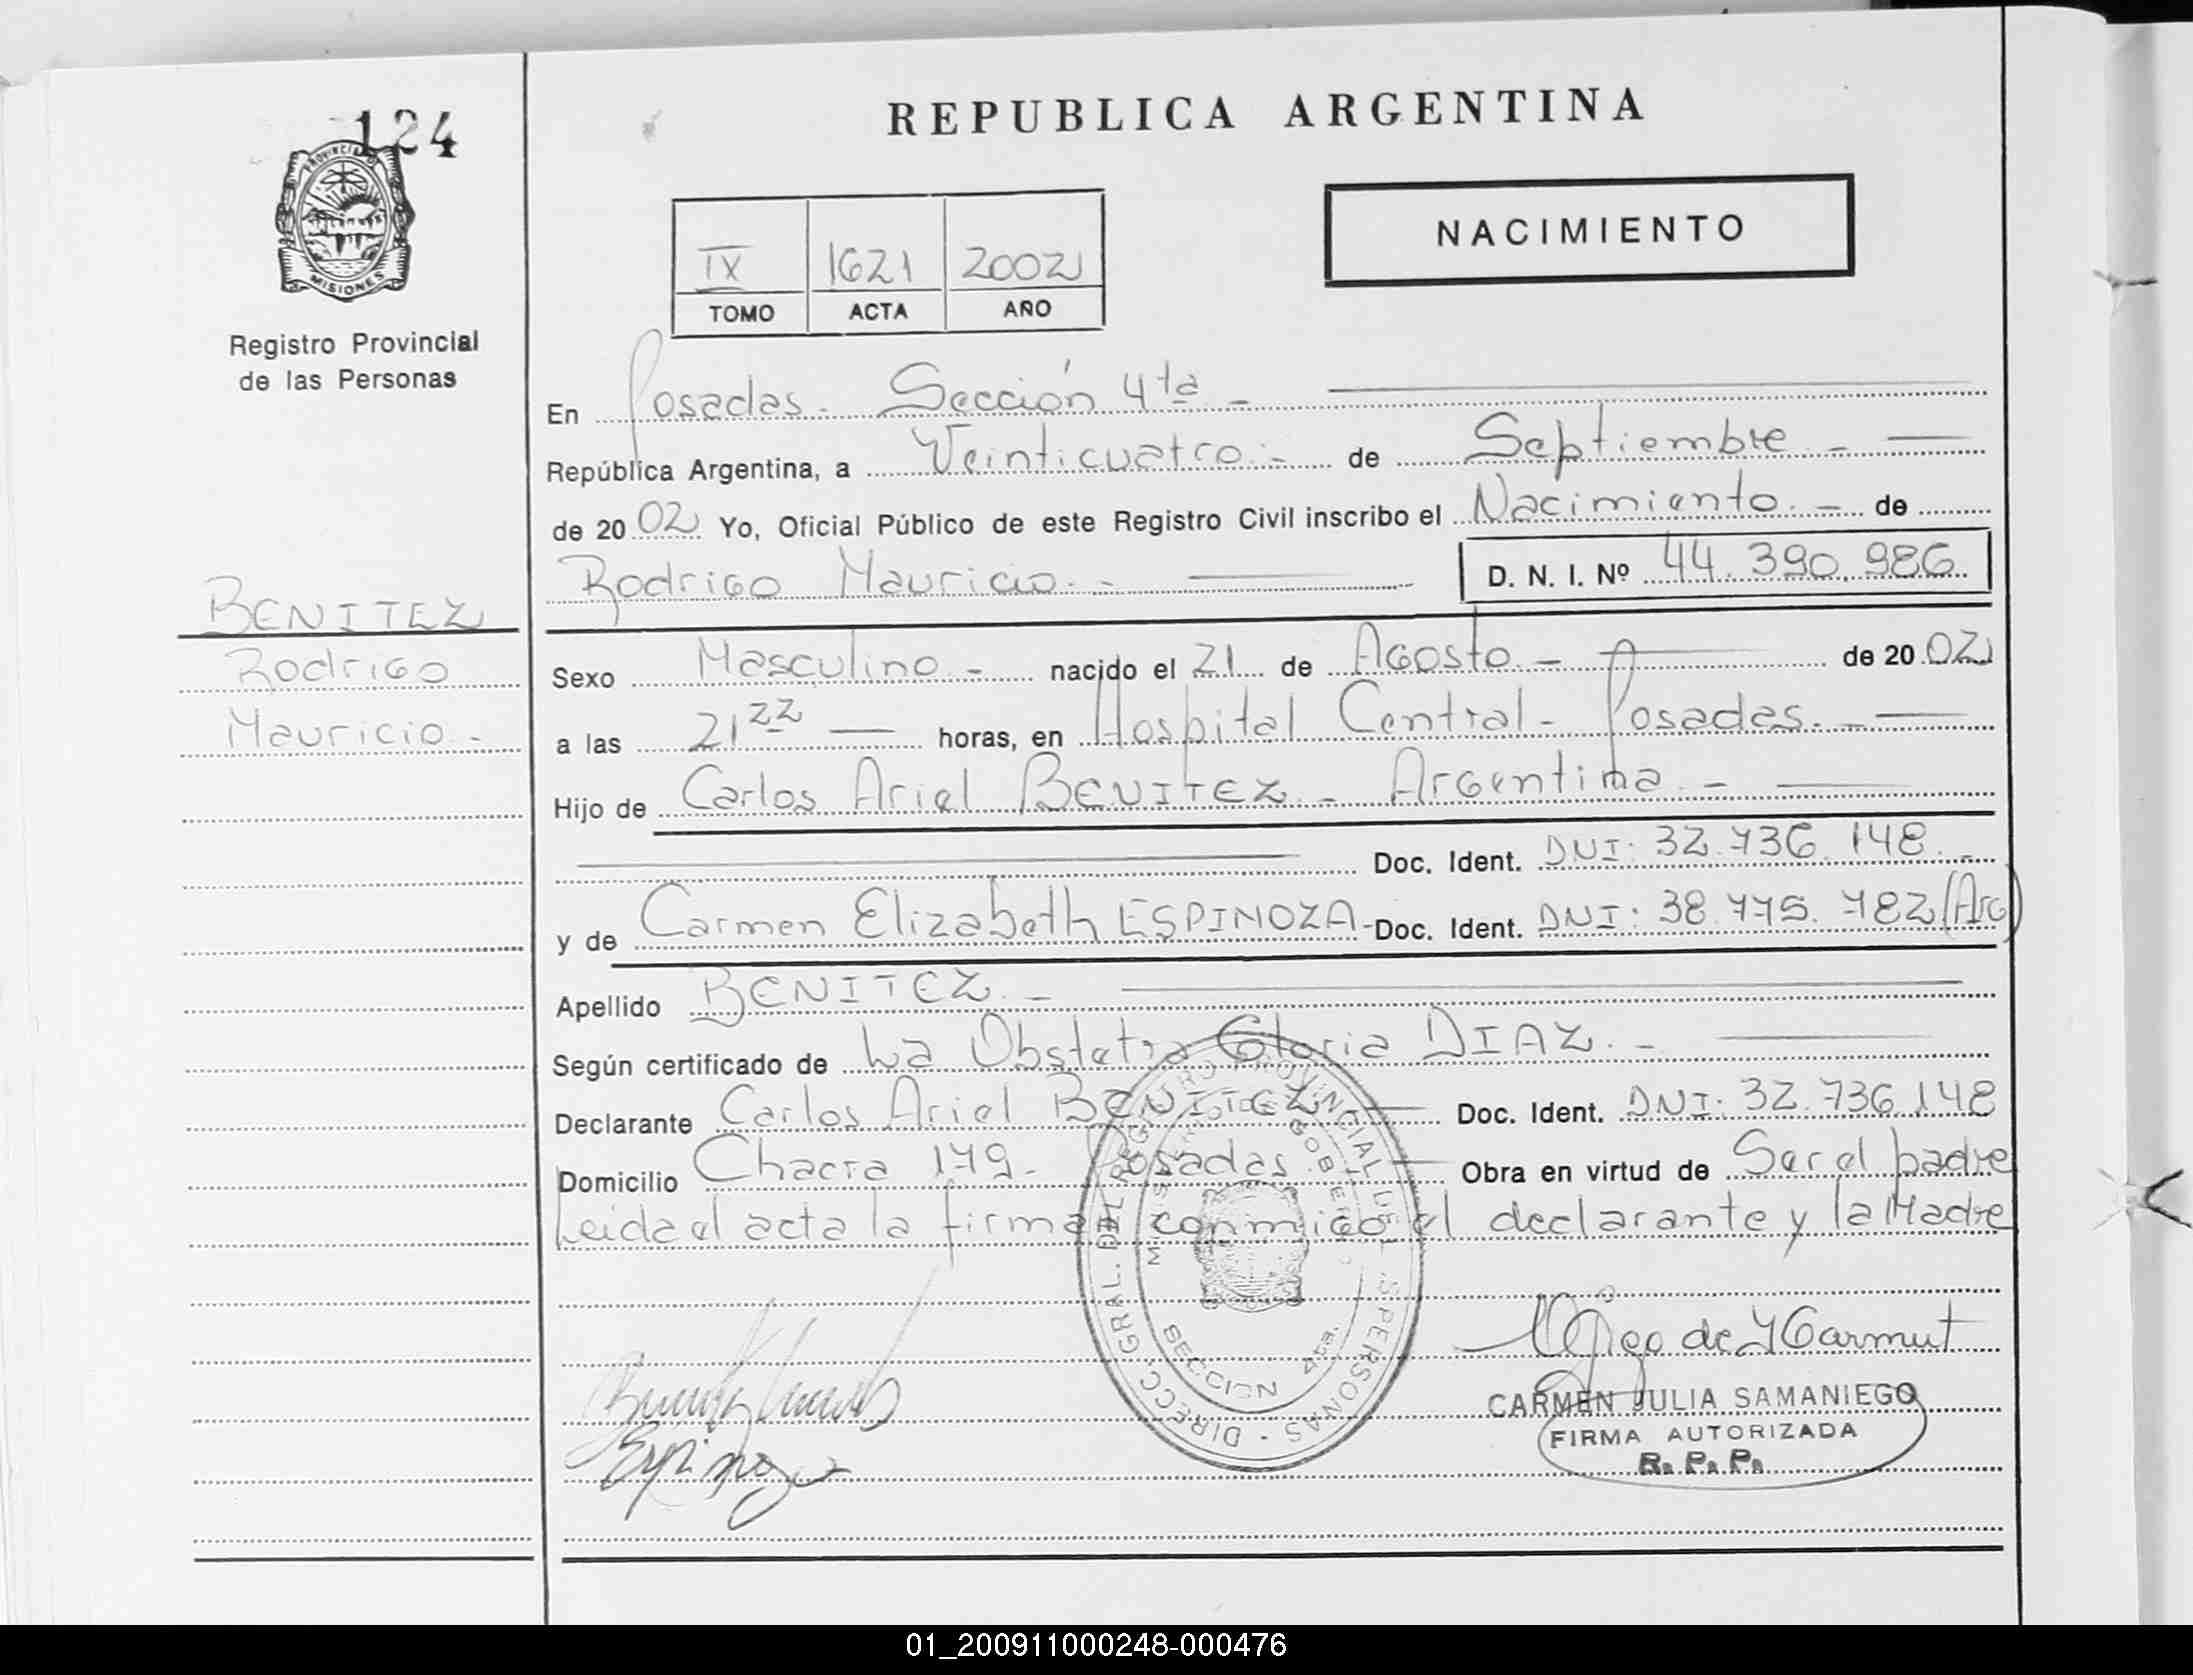 124
PROVINCIA DE
MISIONES
Registro Provincial
de las Personas
BENITEZ
Rodrigo
Mauricio.-
REPUBLICA ARGENTINA
NACIMIENTO
IX 1621 2002
TOMO ACTA AÑO
En Posadas - Sección 4ta -
República Argentina, a Veinticuatro.- de Septiembre.-
de 2002 Yo, Oficial Público de este Registro Civil inscribo el Nacimiento.- de
Rodrigo Mauricio.- D. N. I. Nº 44.390.986
Sexo Masculino.- nacido el 21 de Agosto.- de 2002
a las 21 22 horas, en Hospital Central - Posadas.-
Hijo de Carlos Ariel BENITEZ.- Argentina.-
Doc. Ident. DNI: 32.736.148.-
y de Carmen Elizabeth ESPINOZA - Doc. Ident. DNI: 38.775.782 (Arg)
Apellido BENITEZ.-
Según certificado de La Obstetra Gloria DIAZ.-
Declarante Carlos Ariel BENITEZ Doc. Ident. DNI: 32.736.148
Domicilio Chacra 179 - Posadas.- Obra en virtud de Ser el padre
Leida el acta la firman conmigo el declarante y la Madre
DIRECC. GRAL. DEL REGISTRO PROVINCIAL DE LAS PERSONAS
SECCION 4ta.
Espinoza
CARMEN JULIA SAMANIEGO
FIRMA AUTORIZADA
R. P. P.
01_200911000248-000476